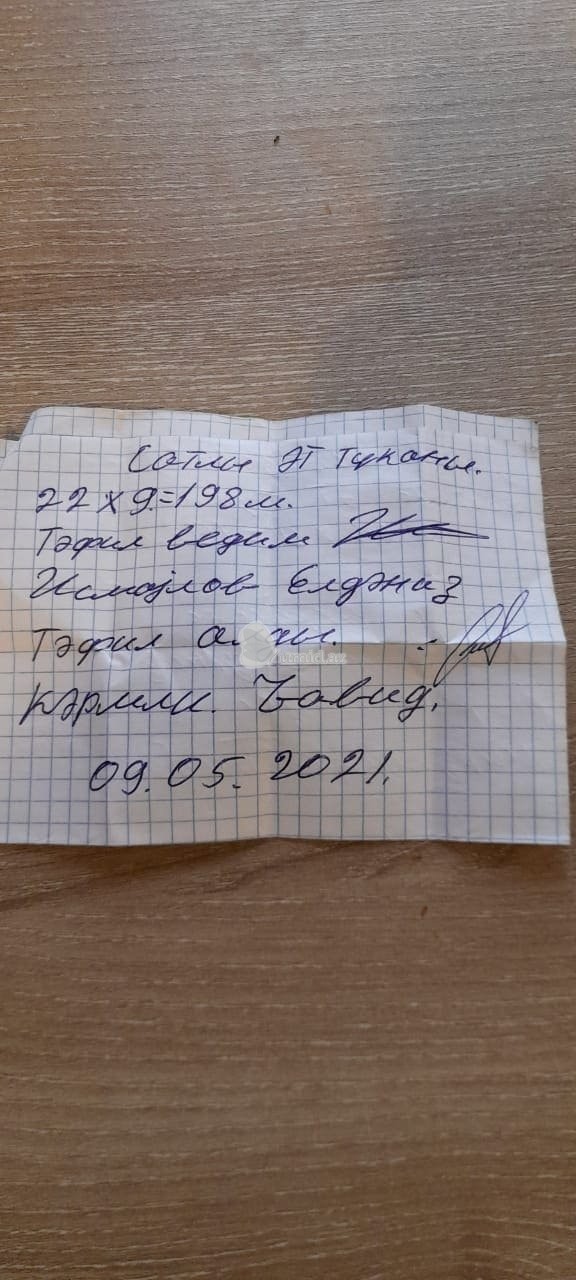 Сатлы ЭТ Туканы.
22 х 9.=198 м.
Тәфил ведим
Исмајлов Елдәниз
Тәфил алды.
Кәримли. Ҹавид,
09.05.2021.